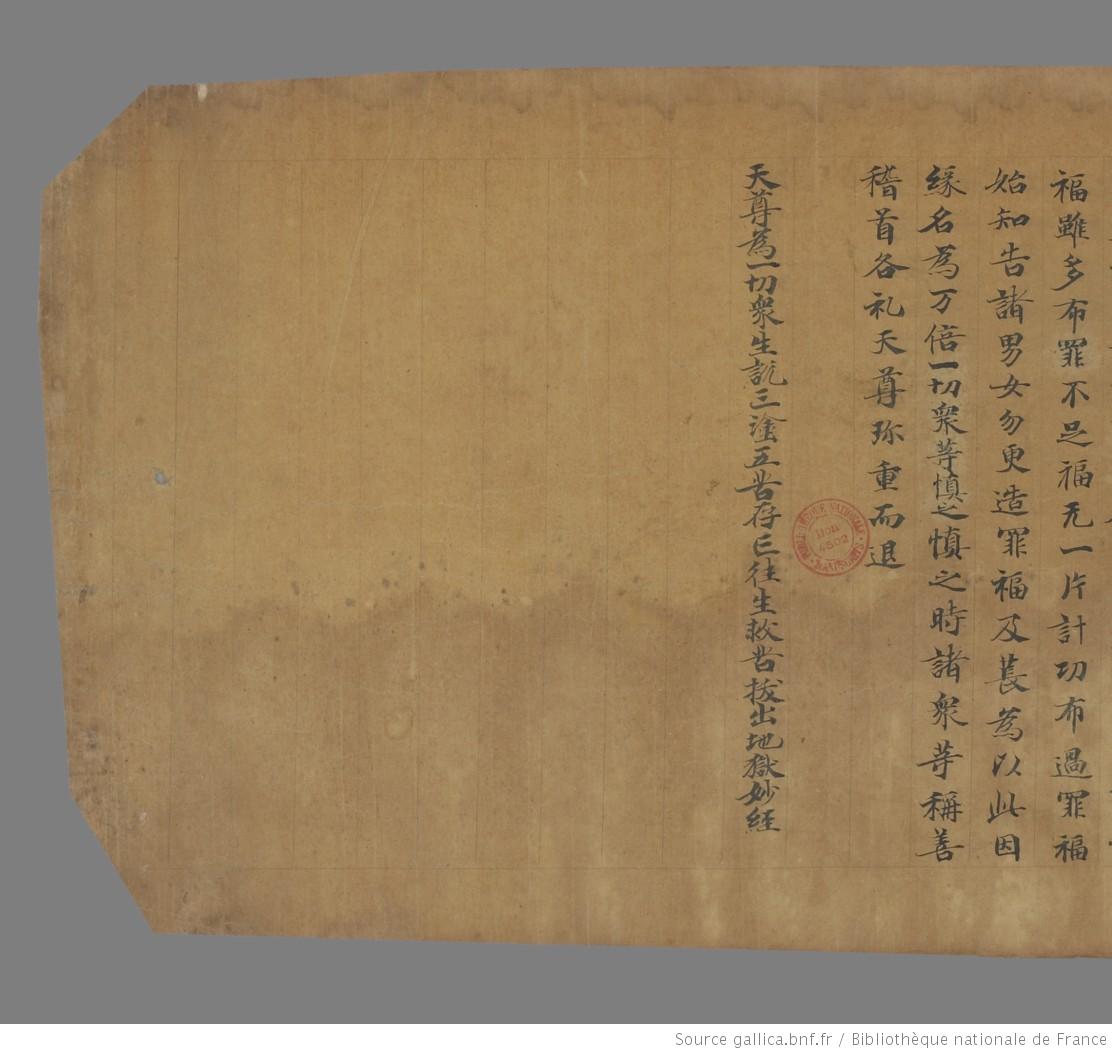 福雖多布罪不足福无一片計功布過罪福
始知告諸男女勿更造罪福及萇為以此因
緣名為万倍一切衆等慎之慎之時諸衆等稱善
稽首各礼天尊珎重而退
天尊為一切衆生說三塗五苦存亡往生救苦拔出地獄妙經
DON 4502
Source gallica.bnf.fr / Bibliothèque nationale de France